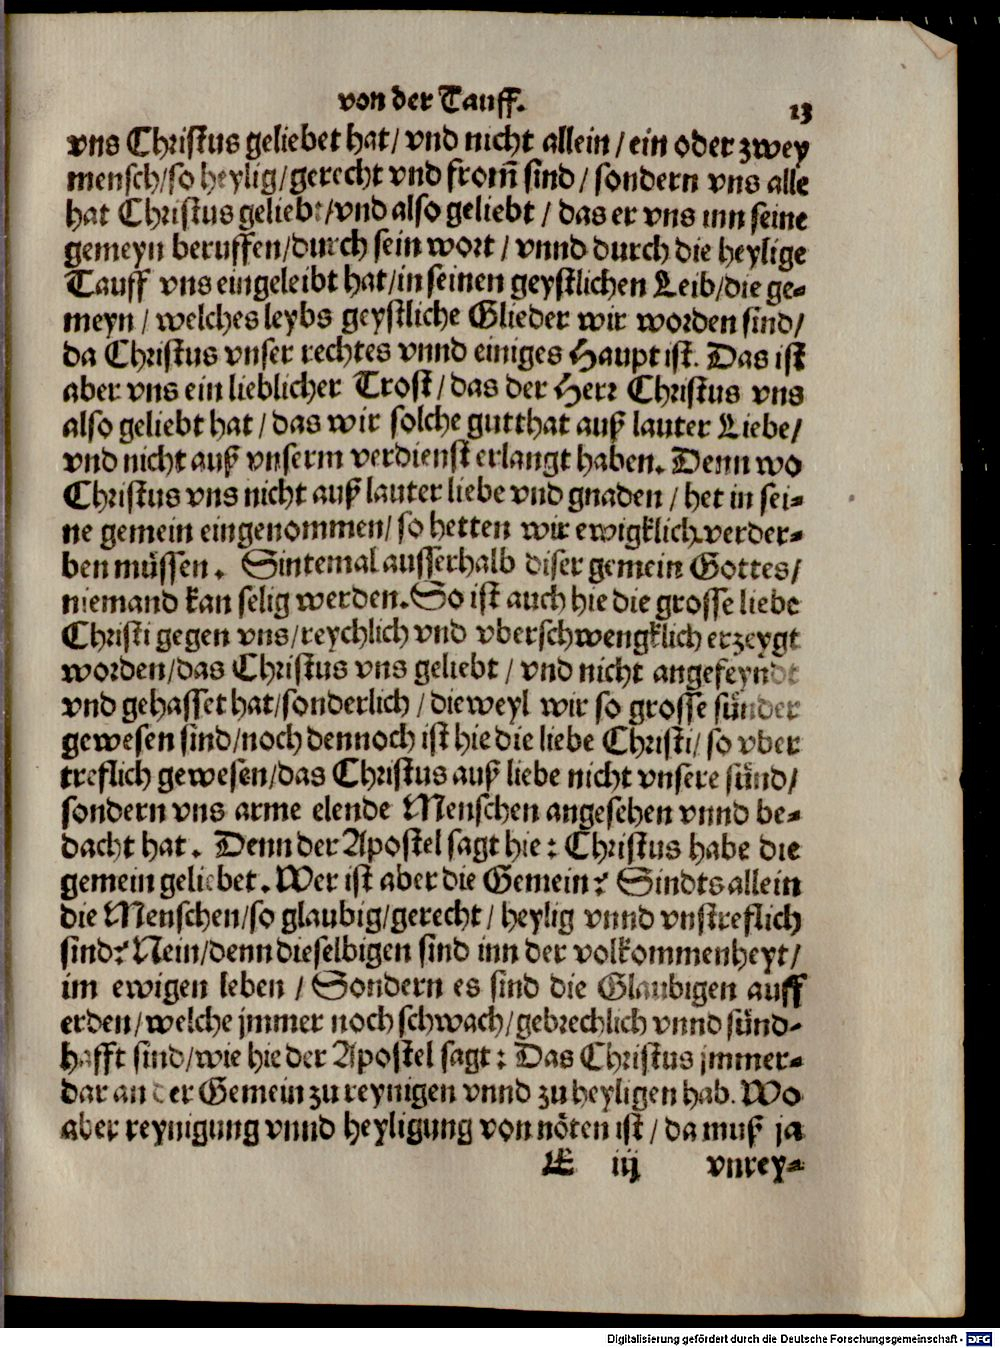 von der Tauff. 13
vns Christus geliebet hat/ vnd nicht allein/ ein oder zwey
mensch/so heylig/gerecht vnd from̃ sind/ sondern vns alle
hat Christus geliebt/vnd also geliebt/ das er vns inn seine
gemeyn beruffen/durch sein wort/ vnnd durch die heylige
Tauff vns eingeleibt hat/in seinen geystlichen Leib/die ge-
meyn/ welches leybs geystliche Glieder wir worden sind/
da Christus vnser rechtes vnnd einiges Haupt ist. Das ist
aber vns ein lieblicher Trost/ das der Herr Christus vns
also geliebt hat/ das wir solche gutthat auß lauter Liebe/
vnd nicht auß vnserm verdienst erlangt haben. Denn wo
Christus vns nicht auß lauter liebe vnd gnaden/ het in sei-
ne gemein eingenommen/ so hetten wir ewigklich verder-
ben müssen. Sintemal ausserhalb diser gemein Gottes/
niemand kan selig werden. So ist auch hie die grosse liebe
Christi gegen vns/reychlich vnd vberschwengklich erzeygt
worden/das Christus vns geliebt/ vnd nicht angefeyndt
vnd gehasset hat/sonderlich/ dieweyl wir so grosse sünder
gewesen sind/noch dennoch ist hie die liebe Christi/ so vber
treflich gewesen/das Christus auß liebe nicht vnsere sünd/
sondern vns arme elende Menschen angesehen vnnd be-
dacht hat. Denn der Apostel sagt hie: Christus habe die
gemein geliebet. Wer ist aber die Gemein? Sindts allein
die Menschen/so glaubig/gerecht/ heylig vnnd vnstreflich
sind? Nein/denn dieselbigen sind inn der volkommenheyt/
im ewigen leben/ Sondern es sind die Glaubigen auff
erden/welche jmmer noch schwach/gebrechlich vnnd sünd-
hafft sind/wie hie der Apostel sagt: Das Christus jmmer-
dar an der Gemein zu reynigen vnnd zu heyligen hab. Wo
aber reynigung vnnd heyligung von nöten ist/ da muß ja
E iij vnrey-
Digitalisierung gefördert durch die Deutsche Forschungsgemeinschaft - DFG